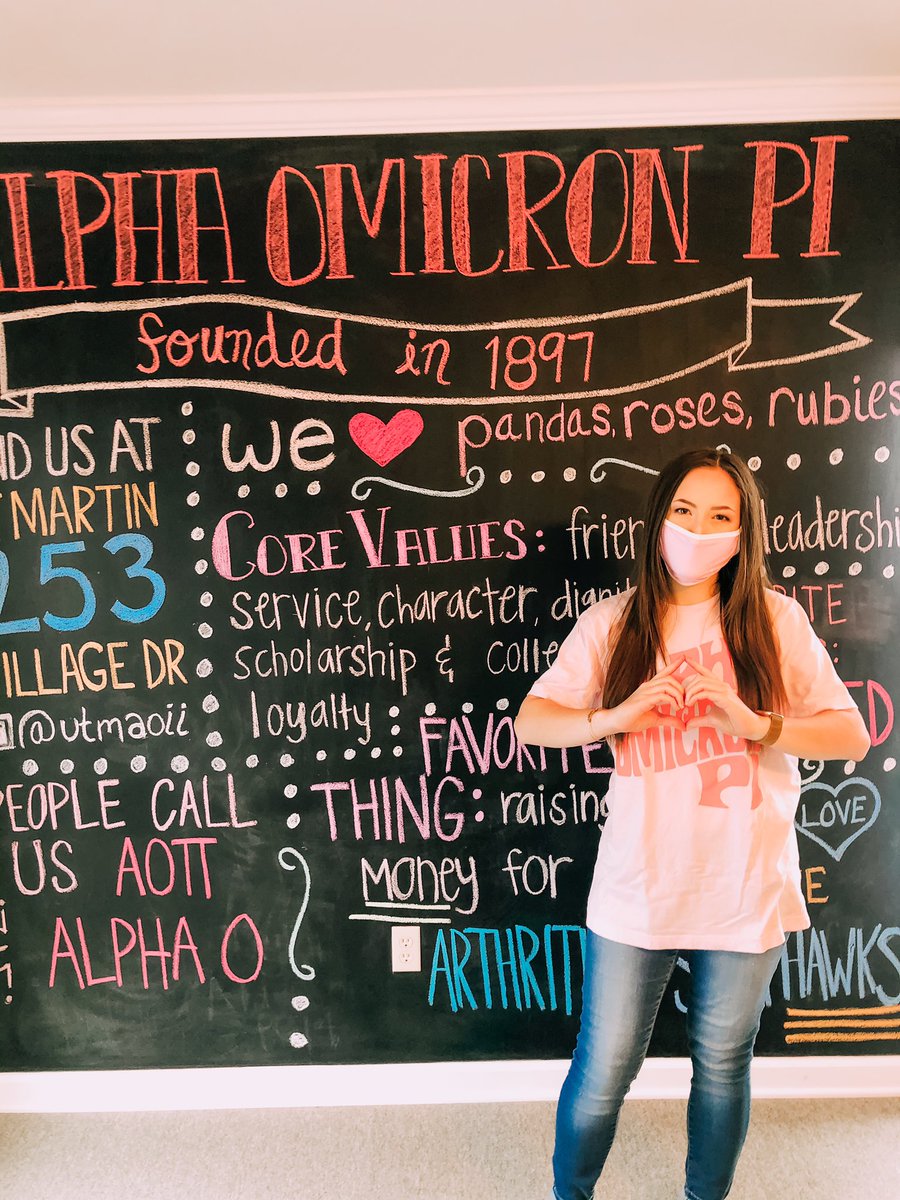 ALPHA OMICRON PI
founded in 1897
US AT
MARTIN
253
VILLAGE DR
@utmaoii
PEOPLE CALL
US AOΠ
ALPHA O
we pandas, roses, rubies
CORE VALUES: leadership
service, character,
scholarship &
loyalty
FAVORITE
THING: raising
money for
LOVE
OMICRON
PI